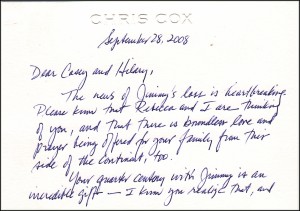 CHRIS COX
September 28, 2008
Dear Casey and Hilary,
The news of Jimmy's loss is heartbreaking.
Please know that Rebecca and I are thinking
of you, and that there is boundless love and
prayer being offered for your family from this
side of the continent, too.
Your quarter century with Jimmy is an
incredible gift — I know you realize that, and